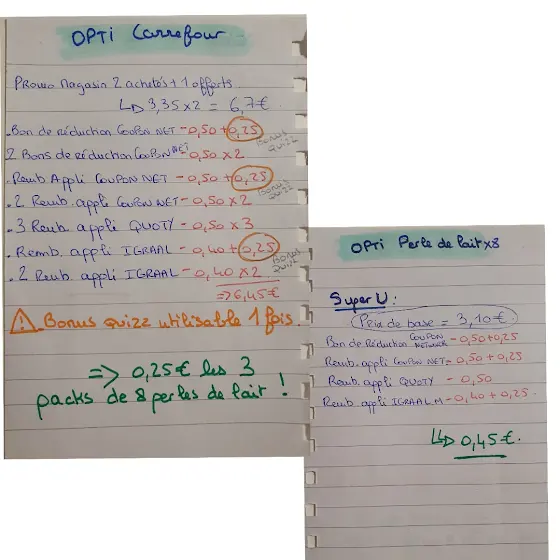 OPTI Carrefour
Promo Magasin 2 achetés + 1 offerts
↳ 3,35 x 2 = 6,7€.
. Bon de réduction CouPoN NET - 0,50 + 0,25
Bonus quizz
2 Bons de réduction CouPoN NET - 0,50 x 2
. Remb Appli CouPoN NET - 0,50 + 0,25
Bonus quizz
. 2 Remb. appli CouPoN NET - 0,50 x 2
. 3 Remb. appli QUOTY - 0,50 x 3
. Remb. appli IGRAAL - 0,40 + 0,25
Bonus quizz
. 2 Remb. appli IGRAAL - 0,40 x 2
=> 6,45€
⚠ Bonus quizz utilisable 1 fois.
=> 0,25€ les 3
packs de 8 perles de lait !
OPTI Perle de lait x8
Super U :
Prix de base = 3,10€
Bon de Réduction COUPON NETWORK - 0,50 + 0,25
Remb. appli CouPoN NET - 0,50 + 0,25
Remb. appli QUOTY - 0,50
Remb. appli IGRAAL M - 0,40 + 0,25.
↳ 0,45€.